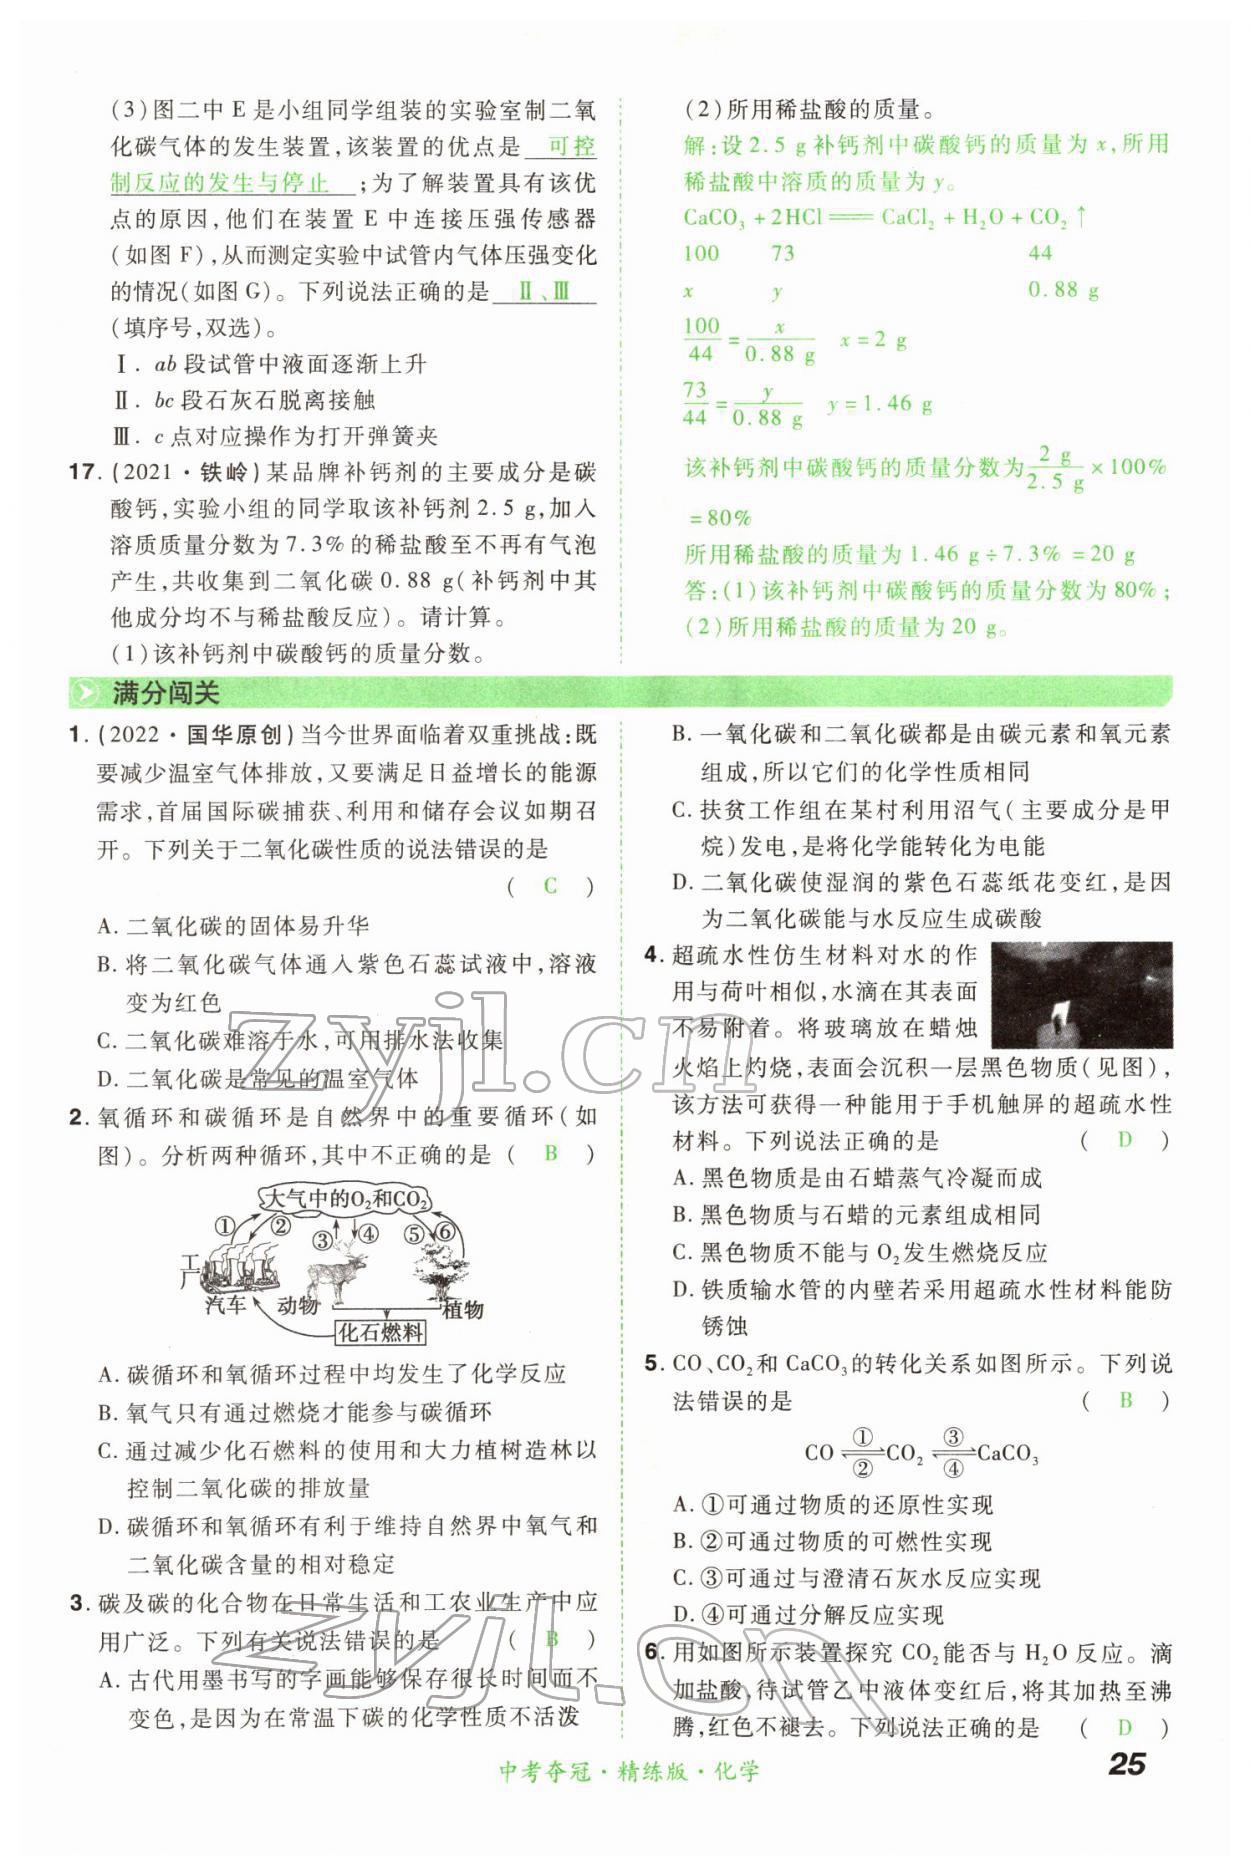 (3)图二中 E 是小组同学组装的实验室制二氧
化碳气体的发生装置,该装置的优点是 可控
制反应的发生与停止 ;为了解装置具有该优
点的原因,他们在装置 E 中连接压强传感器
(如图 F),从而测定实验中试管内气体压强变化
的情况(如图 G)。下列说法正确的是 Ⅱ、Ⅲ
(填序号,双选)。
Ⅰ. ab 段试管中液面逐渐上升
Ⅱ. bc 段石灰石脱离接触
Ⅲ. c 点对应操作为打开弹簧夹
17. (2021·铁岭)某品牌补钙剂的主要成分是碳
酸钙,实验小组的同学取该补钙剂 2.5 g,加入
溶质质量分数为 7.3%的稀盐酸至不再有气泡
产生,共收集到二氧化碳 0.88 g(补钙剂中其
他成分均不与稀盐酸反应)。请计算。
(1)该补钙剂中碳酸钙的质量分数。
(2)所用稀盐酸的质量。
解:设 2.5 g 补钙剂中碳酸钙的质量为 x,所用
稀盐酸中溶质的质量为 y。
CaCO₃ + 2HCl ═══ CaCl₂ + H₂O + CO₂↑
100 73 44
x y 0.88 g
100/44 = x/0.88 g x = 2 g
73/44 = y/0.88 g y = 1.46 g
该补钙剂中碳酸钙的质量分数为 2 g/2.5 g × 100%
= 80%
所用稀盐酸的质量为 1.46 g ÷ 7.3% = 20 g
答:(1)该补钙剂中碳酸钙的质量分数为 80%;
(2)所用稀盐酸的质量为 20 g。
满分闯关
1. (2022·国华原创)当今世界面临着双重挑战:既
要减少温室气体排放,又要满足日益增长的能源
需求,首届国际碳捕获、利用和储存会议如期召
开。下列关于二氧化碳性质的说法错误的是
( C )
A. 二氧化碳的固体易升华
B. 将二氧化碳气体通入紫色石蕊试液中,溶液
变为红色
C. 二氧化碳难溶于水,可用排水法收集
D. 二氧化碳是常见的温室气体
2. 氧循环和碳循环是自然界中的重要循环(如
图)。分析两种循环,其中不正确的是 ( B )
大气中的O₂和CO₂
① ② ③ ④ ⑤ ⑥
工厂
汽车 动物 植物
化石燃料
A. 碳循环和氧循环过程中均发生了化学反应
B. 氧气只有通过燃烧才能参与碳循环
C. 通过减少化石燃料的使用和大力植树造林以
控制二氧化碳的排放量
D. 碳循环和氧循环有利于维持自然界中氧气和
二氧化碳含量的相对稳定
3. 碳及碳的化合物在日常生活和工农业生产中应
用广泛。下列有关说法错误的是 ( B )
A. 古代用墨书写的字画能够保存很长时间而不
变色,是因为在常温下碳的化学性质不活泼
B. 一氧化碳和二氧化碳都是由碳元素和氧元素
组成,所以它们的化学性质相同
C. 扶贫工作组在某村利用沼气(主要成分是甲
烷)发电,是将化学能转化为电能
D. 二氧化碳使湿润的紫色石蕊纸花变红,是因
为二氧化碳能与水反应生成碳酸
4. 超疏水性仿生材料对水的作
用与荷叶相似,水滴在其表面
不易附着。将玻璃放在蜡烛
火焰上灼烧,表面会沉积一层黑色物质(见图),
该方法可获得一种能用于手机触屏的超疏水性
材料。下列说法正确的是 ( D )
A. 黑色物质是由石蜡蒸气冷凝而成
B. 黑色物质与石蜡的元素组成相同
C. 黑色物质不能与 O₂发生燃烧反应
D. 铁质输水管的内壁若采用超疏水性材料能防
锈蚀
5. CO、CO₂和 CaCO₃的转化关系如图所示。下列说
法错误的是 ( B )
CO ①⇌② CO₂ ③⇌④ CaCO₃
A. ①可通过物质的还原性实现
B. ②可通过物质的可燃性实现
C. ③可通过与澄清石灰水反应实现
D. ④可通过分解反应实现
6. 用如图所示装置探究 CO₂能否与 H₂O 反应。滴
加盐酸,待试管乙中液体变红后,将其加热至沸
腾,红色不褪去。下列说法正确的是 ( D )
中考夺冠·精练版·化学
25
zyjl.cn
zyjl.cn